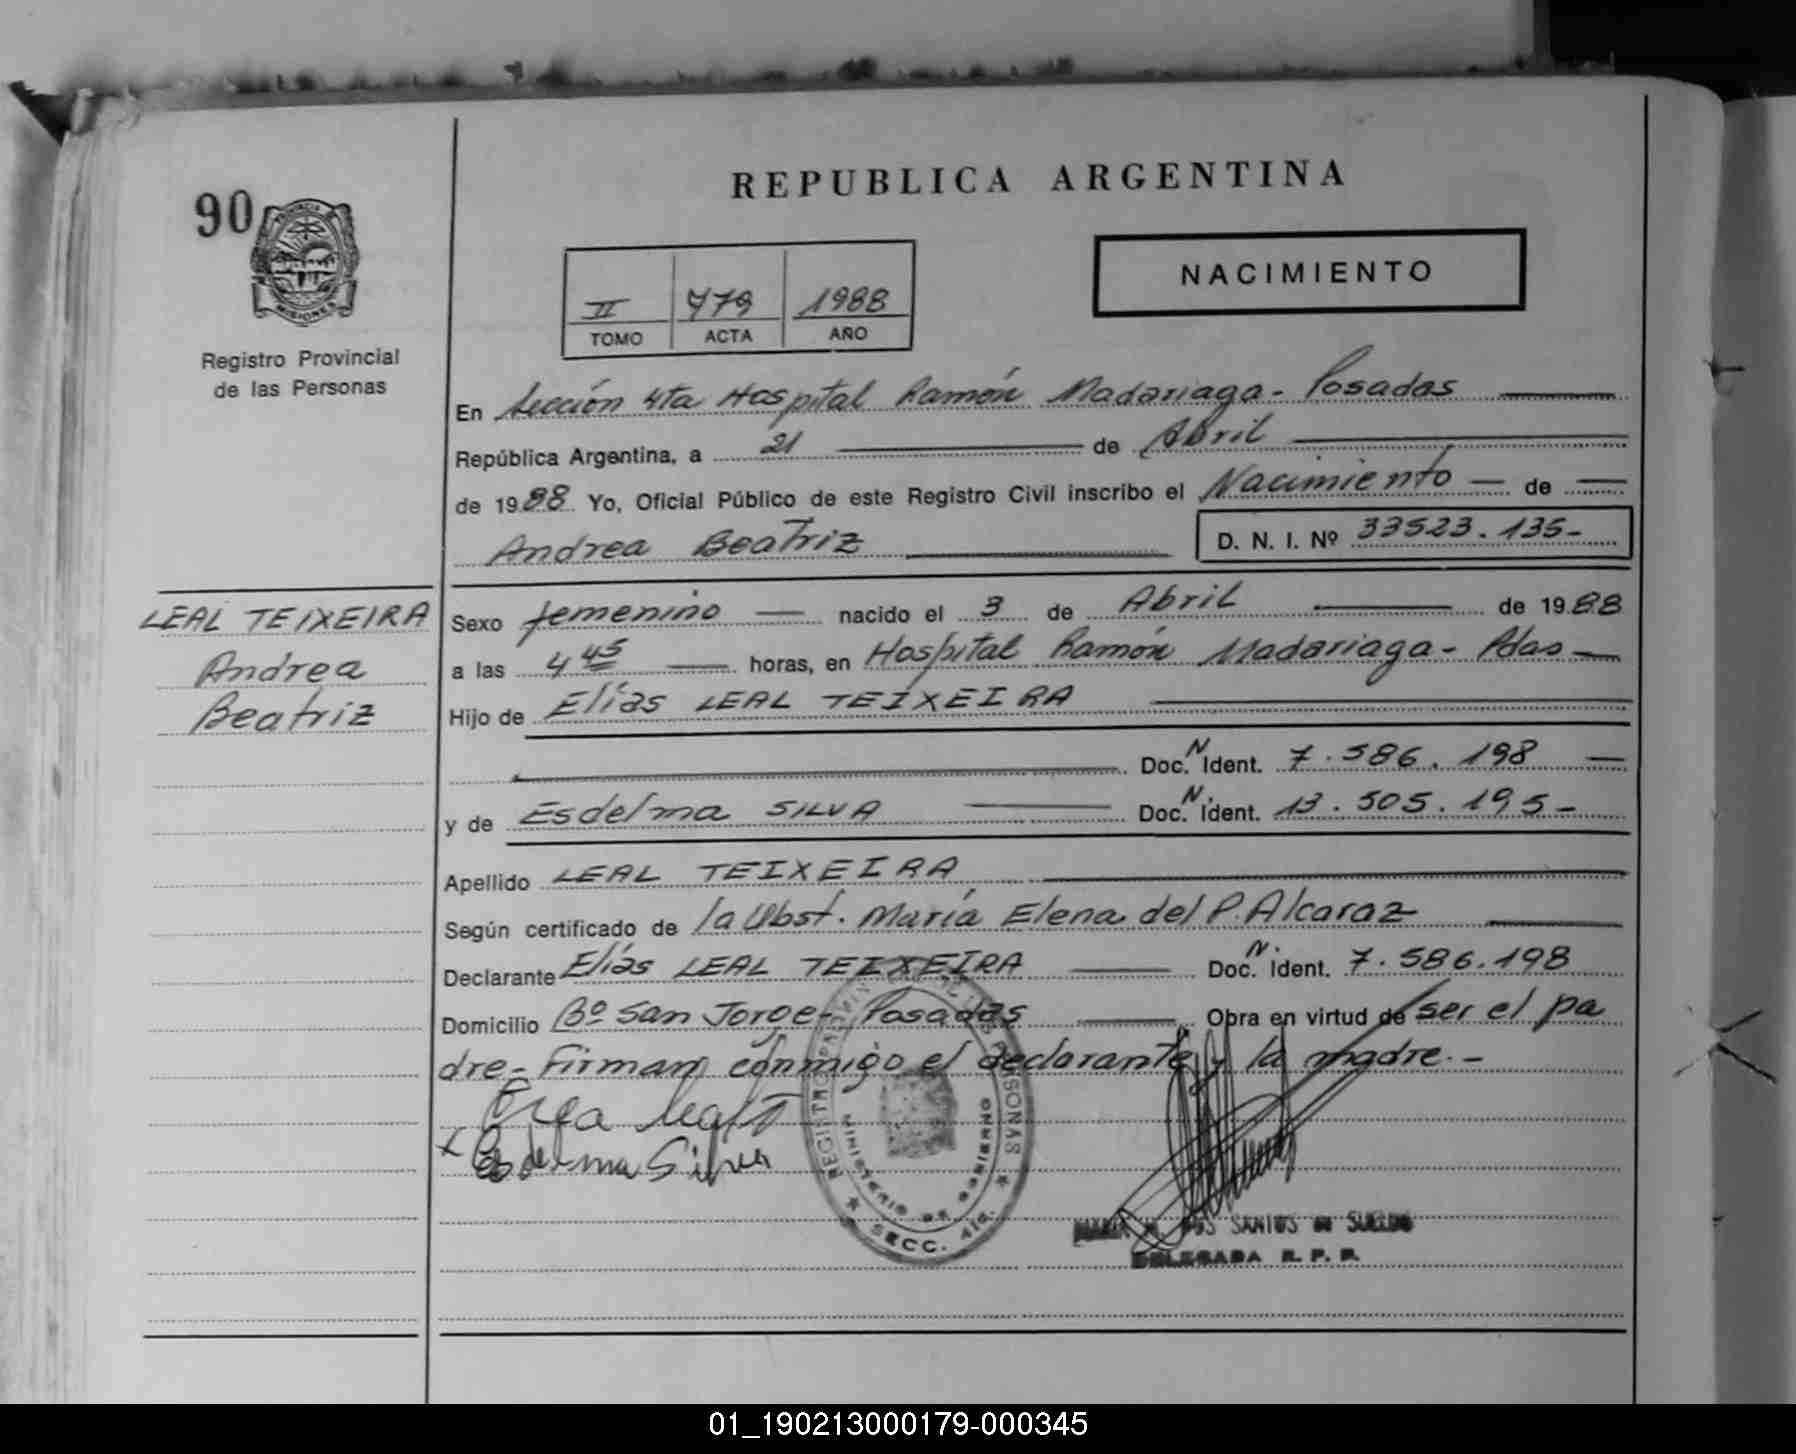 REPUBLICA ARGENTINA
90
PROVINCIA DE
MISIONES
Registro Provincial
de las Personas
NACIMIENTO
II 779 1988
TOMO ACTA AÑO
En Sección 4ta Hospital Ramón Madariaga - Posadas
República Argentina, a 21 de Abril
de 1988 Yo, Oficial Público de este Registro Civil inscribo el Nacimiento de
Andrea Beatriz D. N. I. Nº 33523.135-
LEAL TEIXEIRA
Andrea
Beatriz
Sexo femenino nacido el 3 de Abril de 1988
a las 4 45 horas, en Hospital Ramón Madariaga - Pdas
Hijo de Elías LEAL TEIXEIRA
Doc. N. Ident. 7.586.198
y de Esdelma SILVA Doc. N. Ident. 13.505.195-
Apellido LEAL TEIXEIRA
Según certificado de la Obst. María Elena del P. Alcaraz
Declarante Elías LEAL TEIXEIRA Doc. N. Ident. 7.586.198
Domicilio Bº San Jorge - Posadas Obra en virtud de ser el pa
dre - Firman conmigo el declarante y la madre.-
Esdelma Silva
REGISTRO PROVINCIAL DE LAS PERSONAS
MINISTERIO DE GOBIERNO
SECC. 4ta.
DOS SANTOS de SUELDO
DELEGADA R. P. P.
01_190213000179-000345